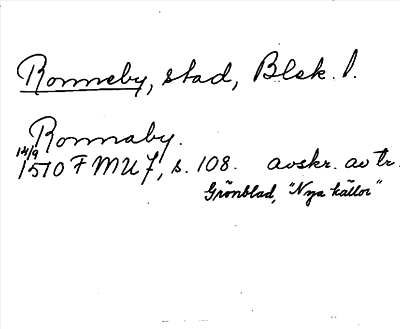 Ronneby, stad, Blek. l.
Ronnaby.
14/9
1510 FMU 7, s. 108. avskr. av tr.
Grönblad, "Nya källor"